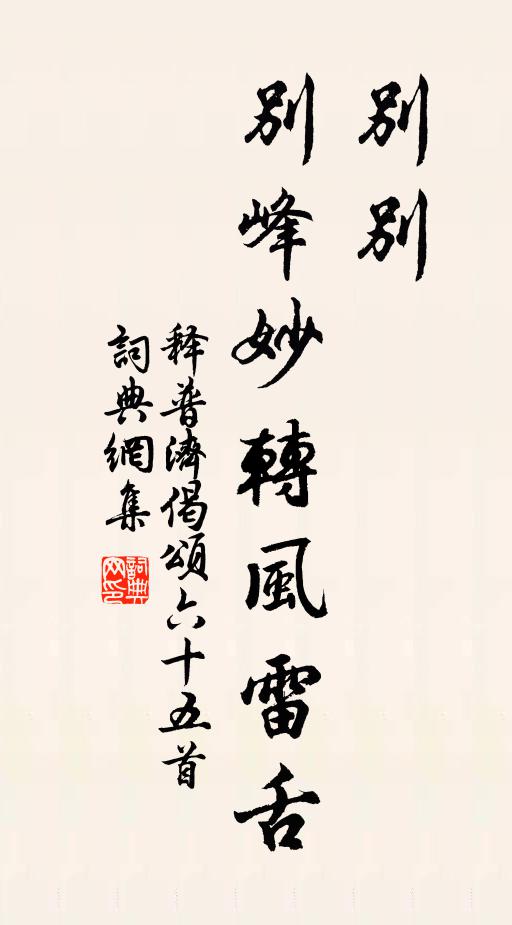 別別
別峰妙轉風雷舌
释普濟偈頌六十五首
詞典網集
詞典网印